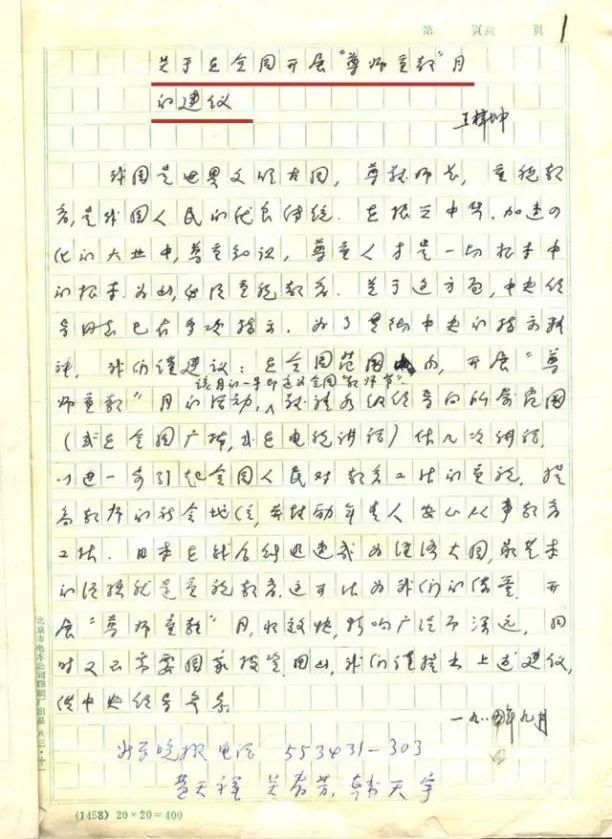 第 页共 页 1
关于在全国开展“尊师重教”月
的建议
王梓坤
我国是世界文明古国，尊敬师长，重视教
育，是我国人民的优良传统．在振兴中华，加速四
化的大业中，尊重知识，尊重人才是一切根本中
的根本．为此，必须重视教育．关于这方面，中央领
导同志已在多次指示．为了贯彻中央的指示精
神，我们谨建议：在全国范围内，开展“尊
该月的一日即定为全国“教师节”．
师重教”月的活动，敬请各级领导向所属范围
（或在全国广播，或在电视讲话）作几次讲话，
以进一步引起全国人民对教育工作的重视，提
高教师的社会地位，并鼓励年青人安心从事教育
工作．日本在战后能迅速成为经济大国，最基本
的经验就是重视教育，这可作为我们的借鉴．开
展“尊师重教”月，收效快，影响广泛而深远，同
时又不需要国家投资．因此，我们谨提出上述建议，
供中央领导参考．
一九八四年九月
电话 553431-303
黄天祥
(1458) 20×20=400
北京市电车公司印刷厂出品 八三·十一